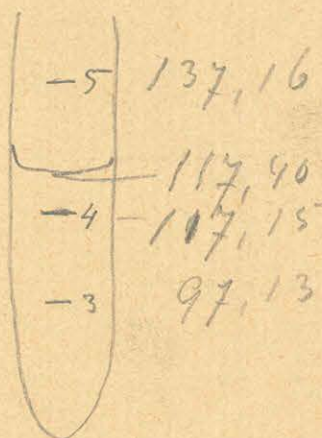 -5 137,16
117,40
-4 - 117,15
-3 97,13